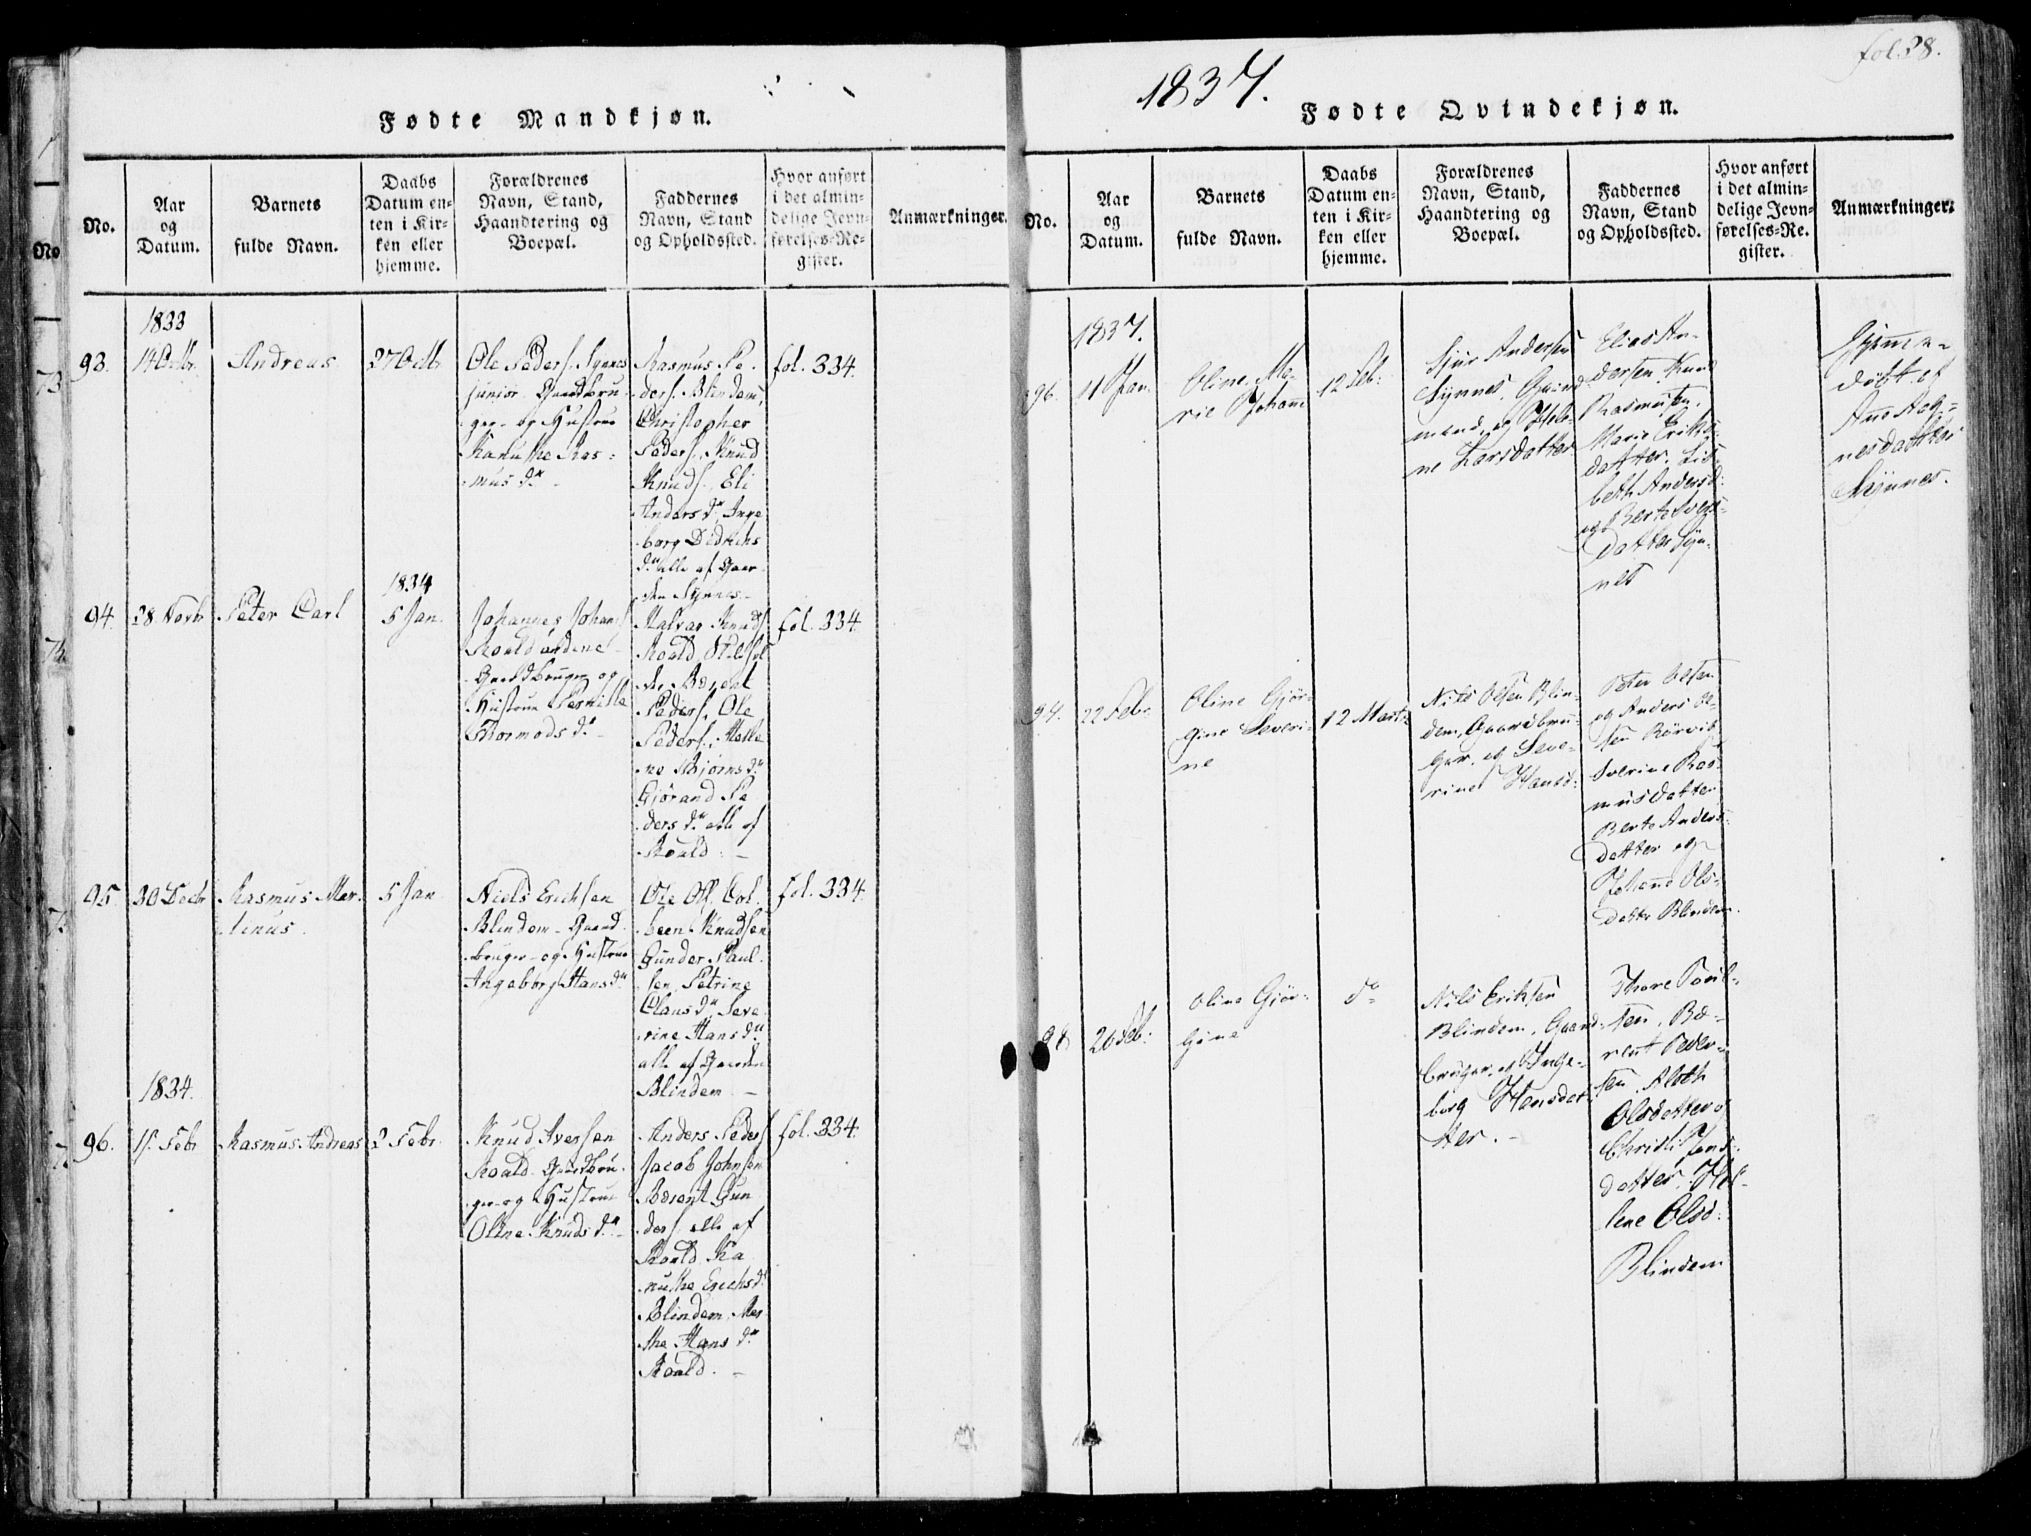 fol. 38.
1837.
Fødte Mandkjøn.
No.
Aar
og
Datum.
Barnets
fulde Navn.
Daabs
Datum en-
ten i Kir-
ken eller
hjemme.
Forældrenes
Navn, Stand,
Haandtering og
Boepæl.
Faddernes
Navn, Stand
og Opholdssted.
Hvor anført
i det almin-
delige Jevn-
førelses-Re-
gister.
Anmærkninger.
1833
93.
14 Octbr.
Andreas
27 Octbr
Ole Peders. Synnes
junior Gaardbru-
ger og Hustrue
Kanuthe Ras-
mus dr.
Rasmus Pe-
ders. Blindem,
Christopher
Peders., Knud
Knuds., Eli
Anders dr, Inge
borg Didrichs
dr alle af Gaar-
den Synnes
fol. 334.
94.
28 Novbr
Peter Carl
1834
5 Jan.
Johannes Johans.
Roald
Gaardbruger og
Hustrue Pernille
Thormods dr.
Halvar Knuds.
Roald
Bærent
Peders., Ole
Peders., Helle
ne Bjørns dr.
Gjørand Pe
ders dr. alle af
Roald.
fol. 334.
95.
30 Decbr
Rasmus Mar-
tinus.
5 Jan
Niels Erichsen
Blindem - Gaard
bruger - og Hustrue
Ingeborg Hans dr
Ole Ols. Col-
been Knudsen
Gunder Paul-
sen, Petrine
Claus dr, Seve
rine Hans dr
alle af Gaarden
Blindem
fol. 334.
1834.
96.
15. Febr
Rasmus Andreas
2 Febr.
Knud Iversen
Roald. Gaardbru-
ger og Hustrue
Oline Knuds dr.
Anders Peders.
Jacob Johnsen
Bærent Gun
ders. alle af
Roald, Ka
nuthe Erichs dr
Blindem, Mar
the Hans dr.
Roald.
fol. 334.
Fødte Qvindekjøn.
No.
Aar
og
Datum.
Barnets
fulde Navn.
Daabs
Datum en-
ten i Kir-
ken eller
hjemme.
Forældrenes
Navn, Stand,
Haandtering og
Boepæl.
Faddernes
Navn, Stand
og Opholdssted.
Hvor anført
i det almin-
delige Jevn-
førelses-Re-
gister.
Anmærkninger.
1837.
96.
11 Jan.
Oline Ma-
rie Johanne
12 Feb:
Sjur Andersen
Synnes, Gaard-
mand, og Hele-
ne Larsdatter
Elias An-
dersen, Knud
Rasmusen,
Marie Eriks-
datter, Lis-
beth Andersd:
og Berte Ivers-
datter Syn-
nes
Hjemme-
døbt af
Ane Aag-
nesdatter
Synnes.
97.
22 Feb.
Oline Gjør-
gine Severi-
ne
12 Marts
Nils Olsen Blin-
dem, Gaardbru-
ger, og Seve-
rine Hansd:
Peter Olsen
og Anders Ol-
sen Rørvik
Sverine Ras-
musdatter
Berte Anders-
datter og
Johanne Ols-
datter Blindem.
98
26 Feb:
Oline Gjør-
gine
do
Nils Eriksen
Blindem, Gaard-
bruger, og Inge-
borg Hansdat-
ter. -
Thore Povel-
sen, Bæ-
rent Peder-
sen, Aleth
Olsdatter og
Christi Jens-
datter, Hel-
lene Olsd:
Blindem